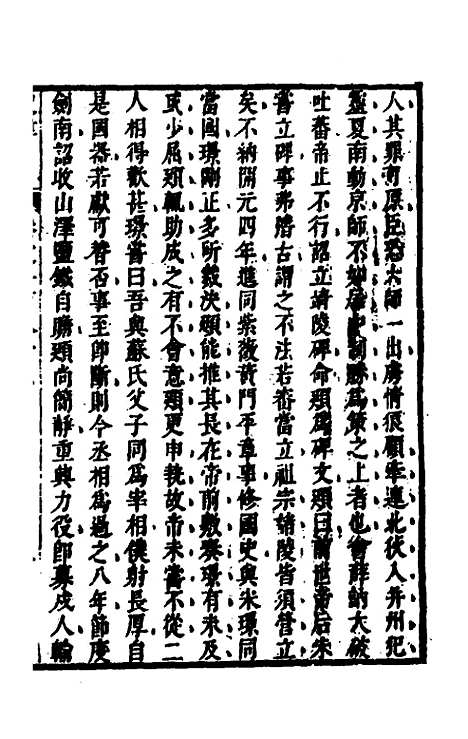 人其罪可原臣恐大師一出虜情狠顧牽連北徙入并州犯
靈夏南動京師不如屠申制勝爲策之上者也會薛訥大破
吐蕃帝止不行詔立靖陵碑命頲爲碑文頲曰前世帝后未
嘗立碑事弗稽古謂之不法若審當立祖宗諸陵皆須營立
矣不納開元四年進同紫微黃門平章事修國史與宋璟同
當國璟剛正多所裁決頲能推其長在帝前敷奏璟有未及
或少屈頲輒助成之有不會意頲更申執故帝未嘗不從二
人相得歡甚璟嘗曰吾與蘇氏父子同爲宰相僕射長厚自
是國器若獻可替否事至即斷則今丞相爲過之八年節度
劍南詔收山澤鹽鐵自贍頲尚簡靜重興力役即募戍人輸